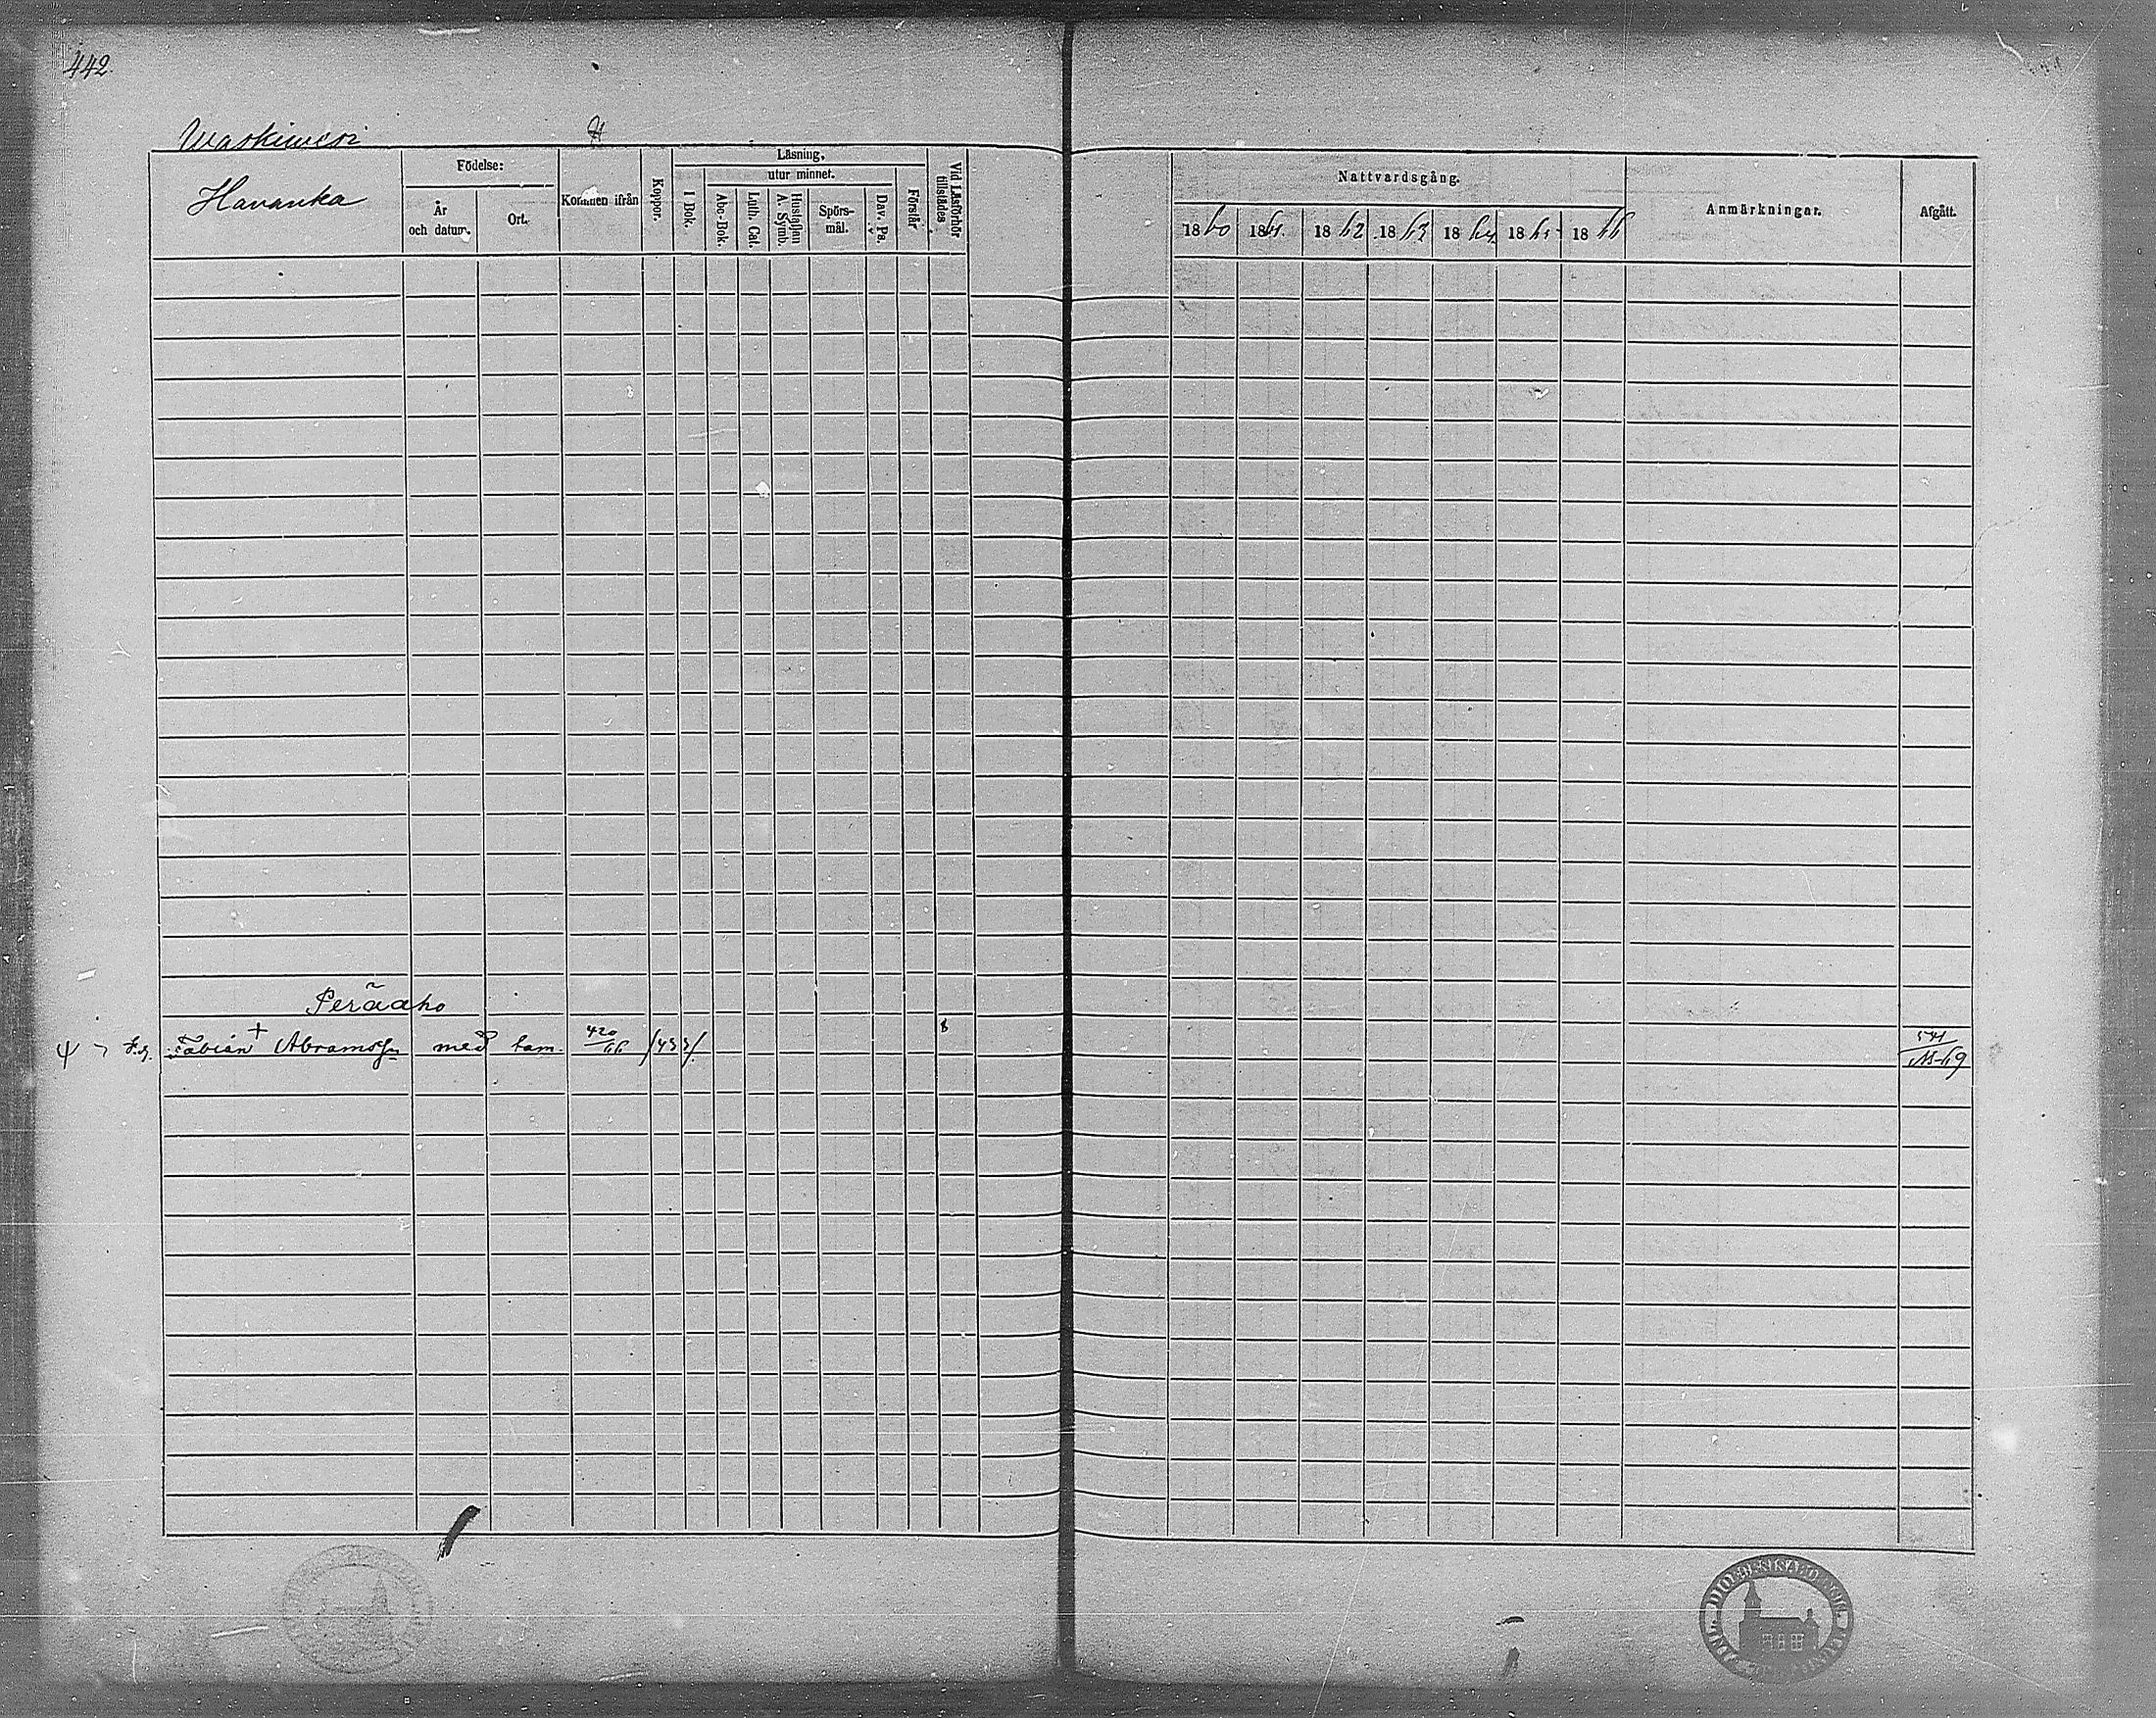 442.
Waskiwesi
Havanka
Födelse: Kommen ifrån Koppor. Läsning. Vid Läsförhör tillstädes
utur minnet.
År och datum. Ort. I Bok. Abc-Bok. Luth. Cat. Hustaflan A. Symb. Spörs-mål. Dav. Ps. Förstår
Nattvardsgång. Anmärkningar. Afgått.
1860 1861. 1862 1863 1864 1865 1866
Peräaho
Fabian Abramss. med fam. 420/66 /433/. 8 541/M-69